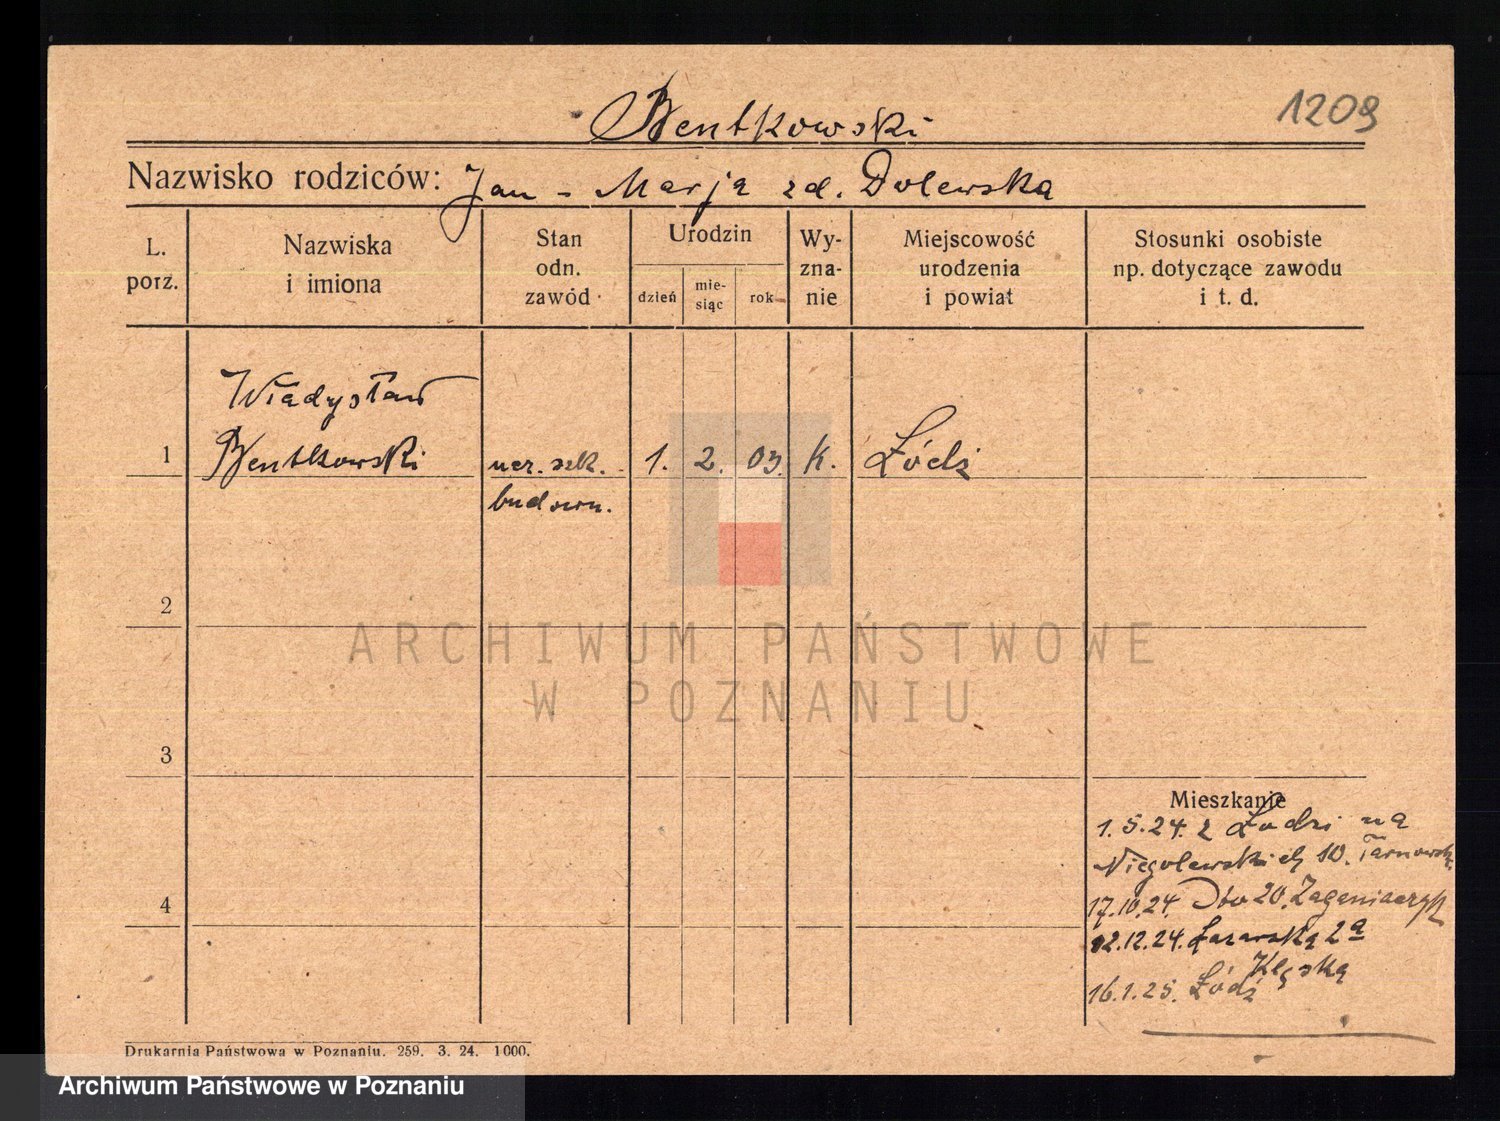 1209
Bentkowski
Nazwisko rodziców: Jan - Marja zd. Dolewska
L. porz.
Nazwiska i imiona
Stan odn. zawód
Urodzin
dzień
mie-siąc
rok
Wy-zna-nie
Miejscowość urodzenia i powiat
Stosunki osobiste np. dotyczące zawodu i t. d.
Władysław
1 Bentkowski ucz. szk. 1. 2. 03. K. Łódź
budown.
2
ARCHIWUM PAŃSTWOWE
W POZNANIU
3
Mieszkanie
1.5.24. z Łodzi na
Niegolewskich 10.
4
17.10.24. 20.
12.12.24. Łazarska 2a
16.1.25. Łódź
Drukarnia Państwowa w Poznaniu. 259. 3. 24. 1000.
Archiwum Państwowe w Poznaniu